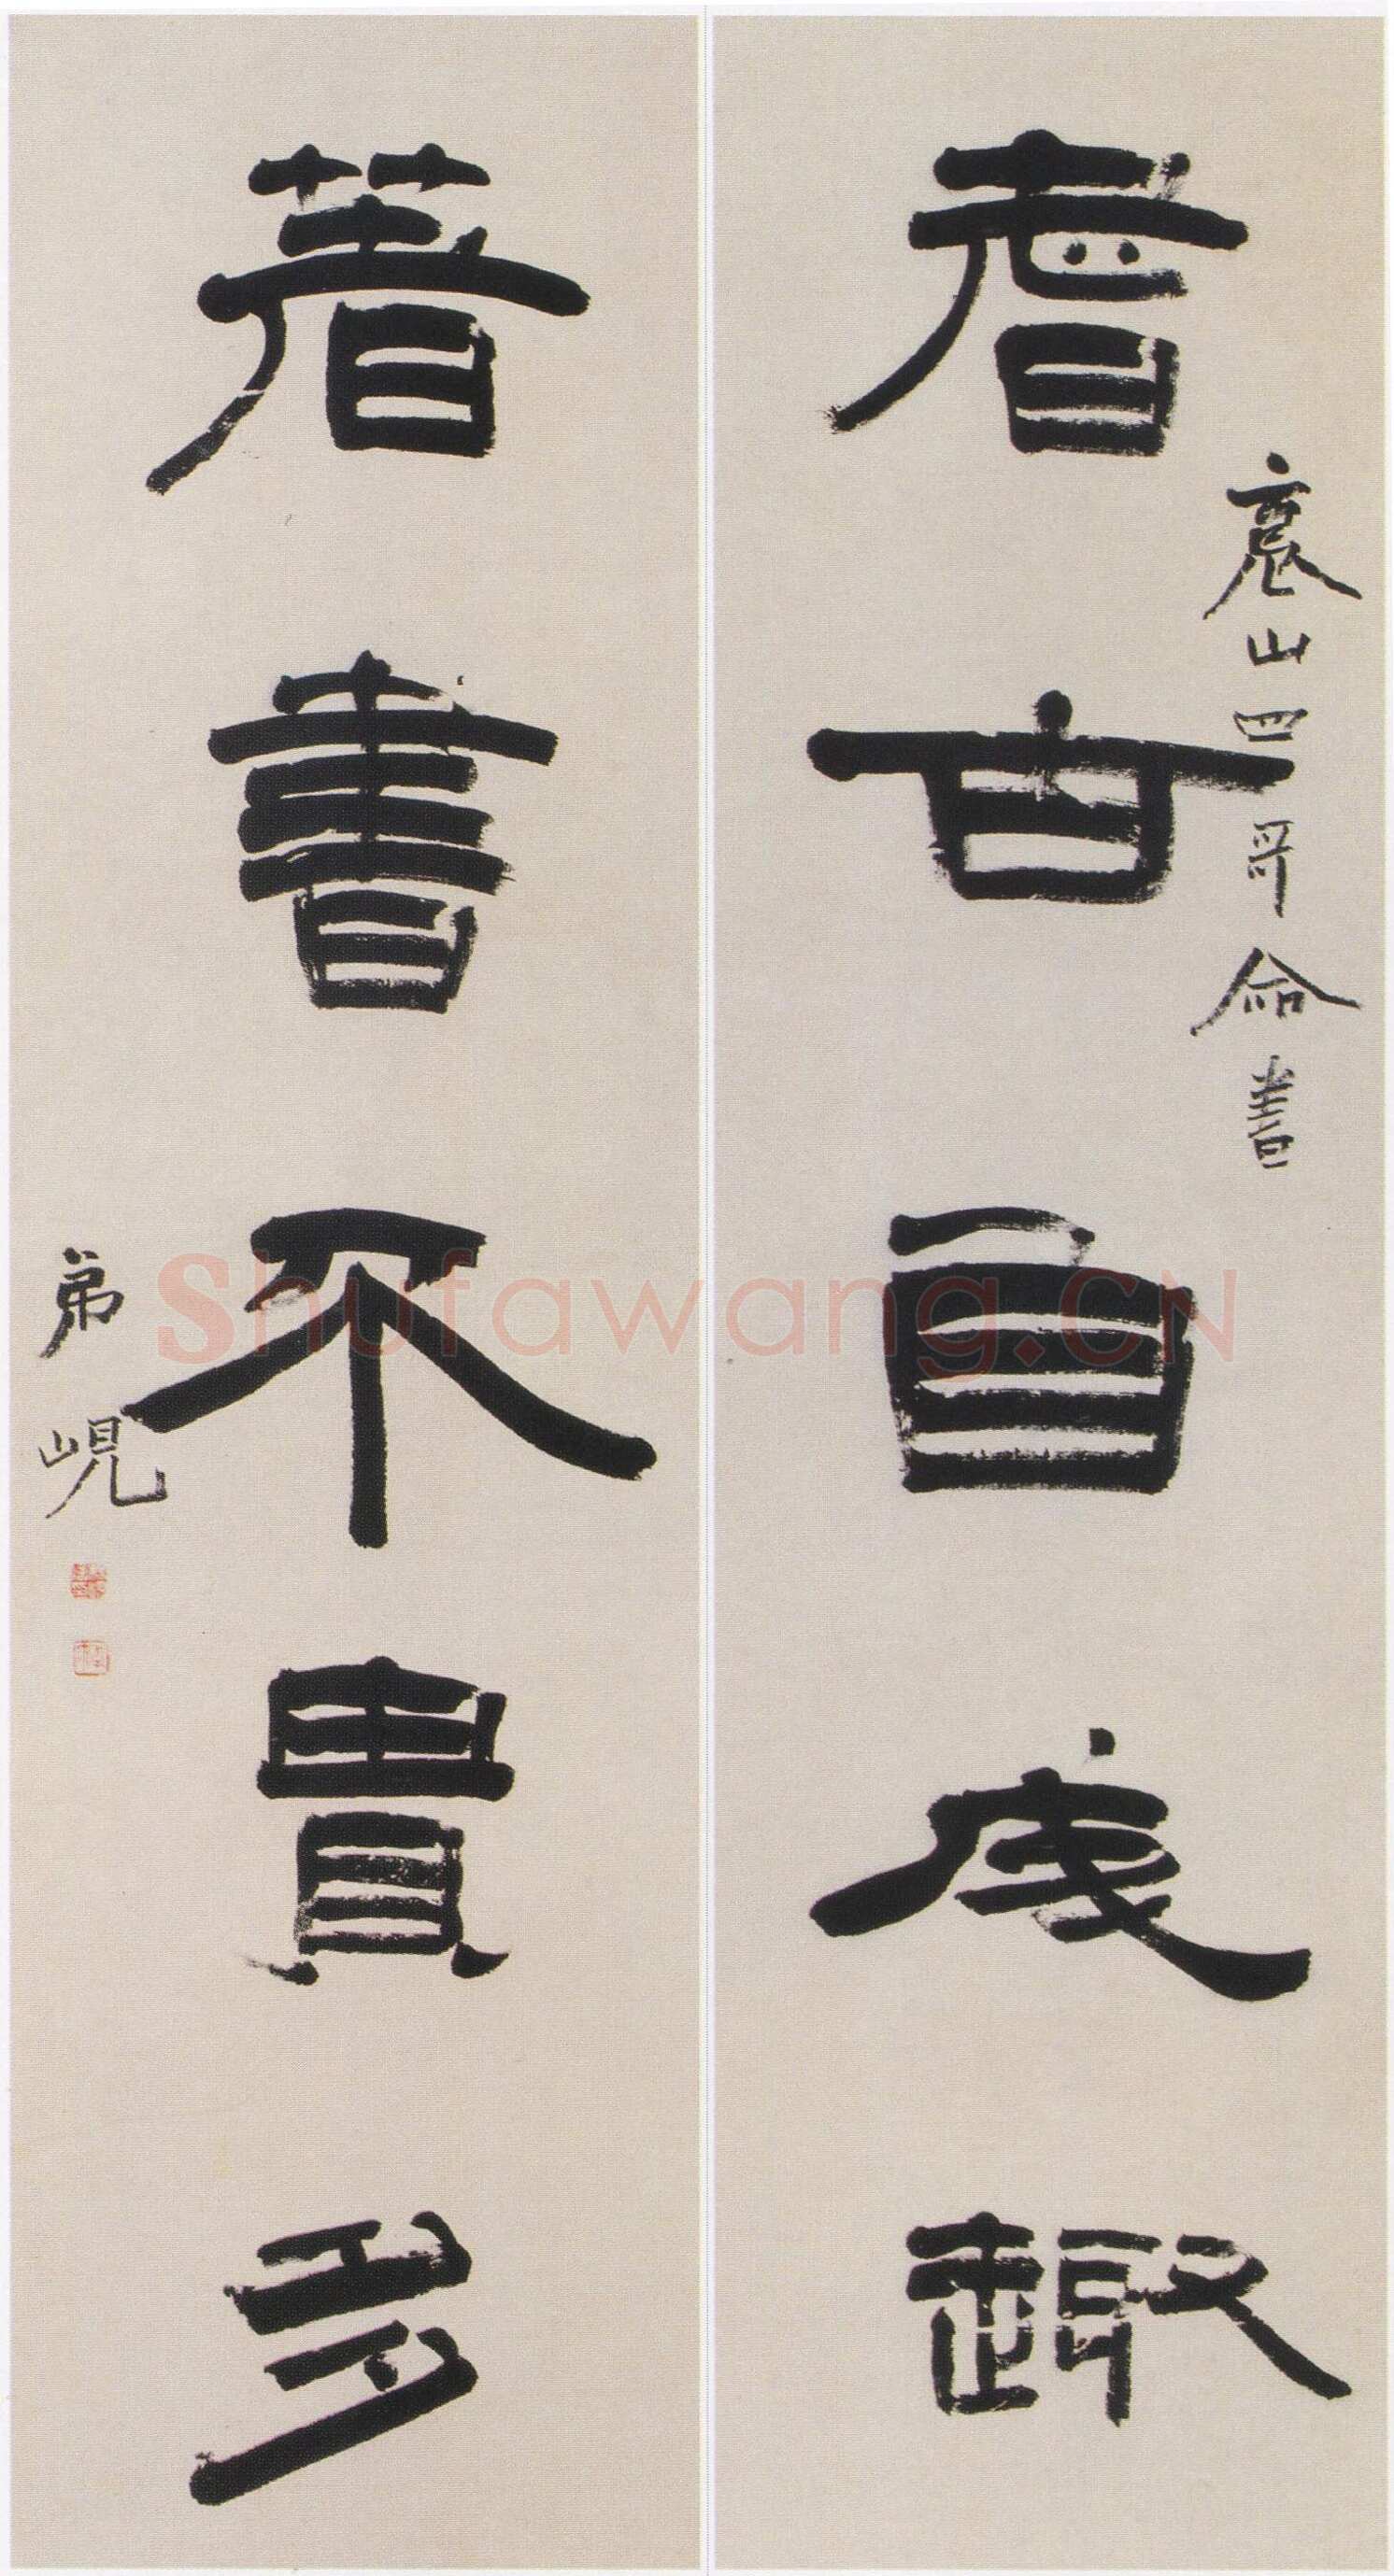 耆古自成趣
山四哥命書
著書不貴多
弟峴
Shufawang.CN